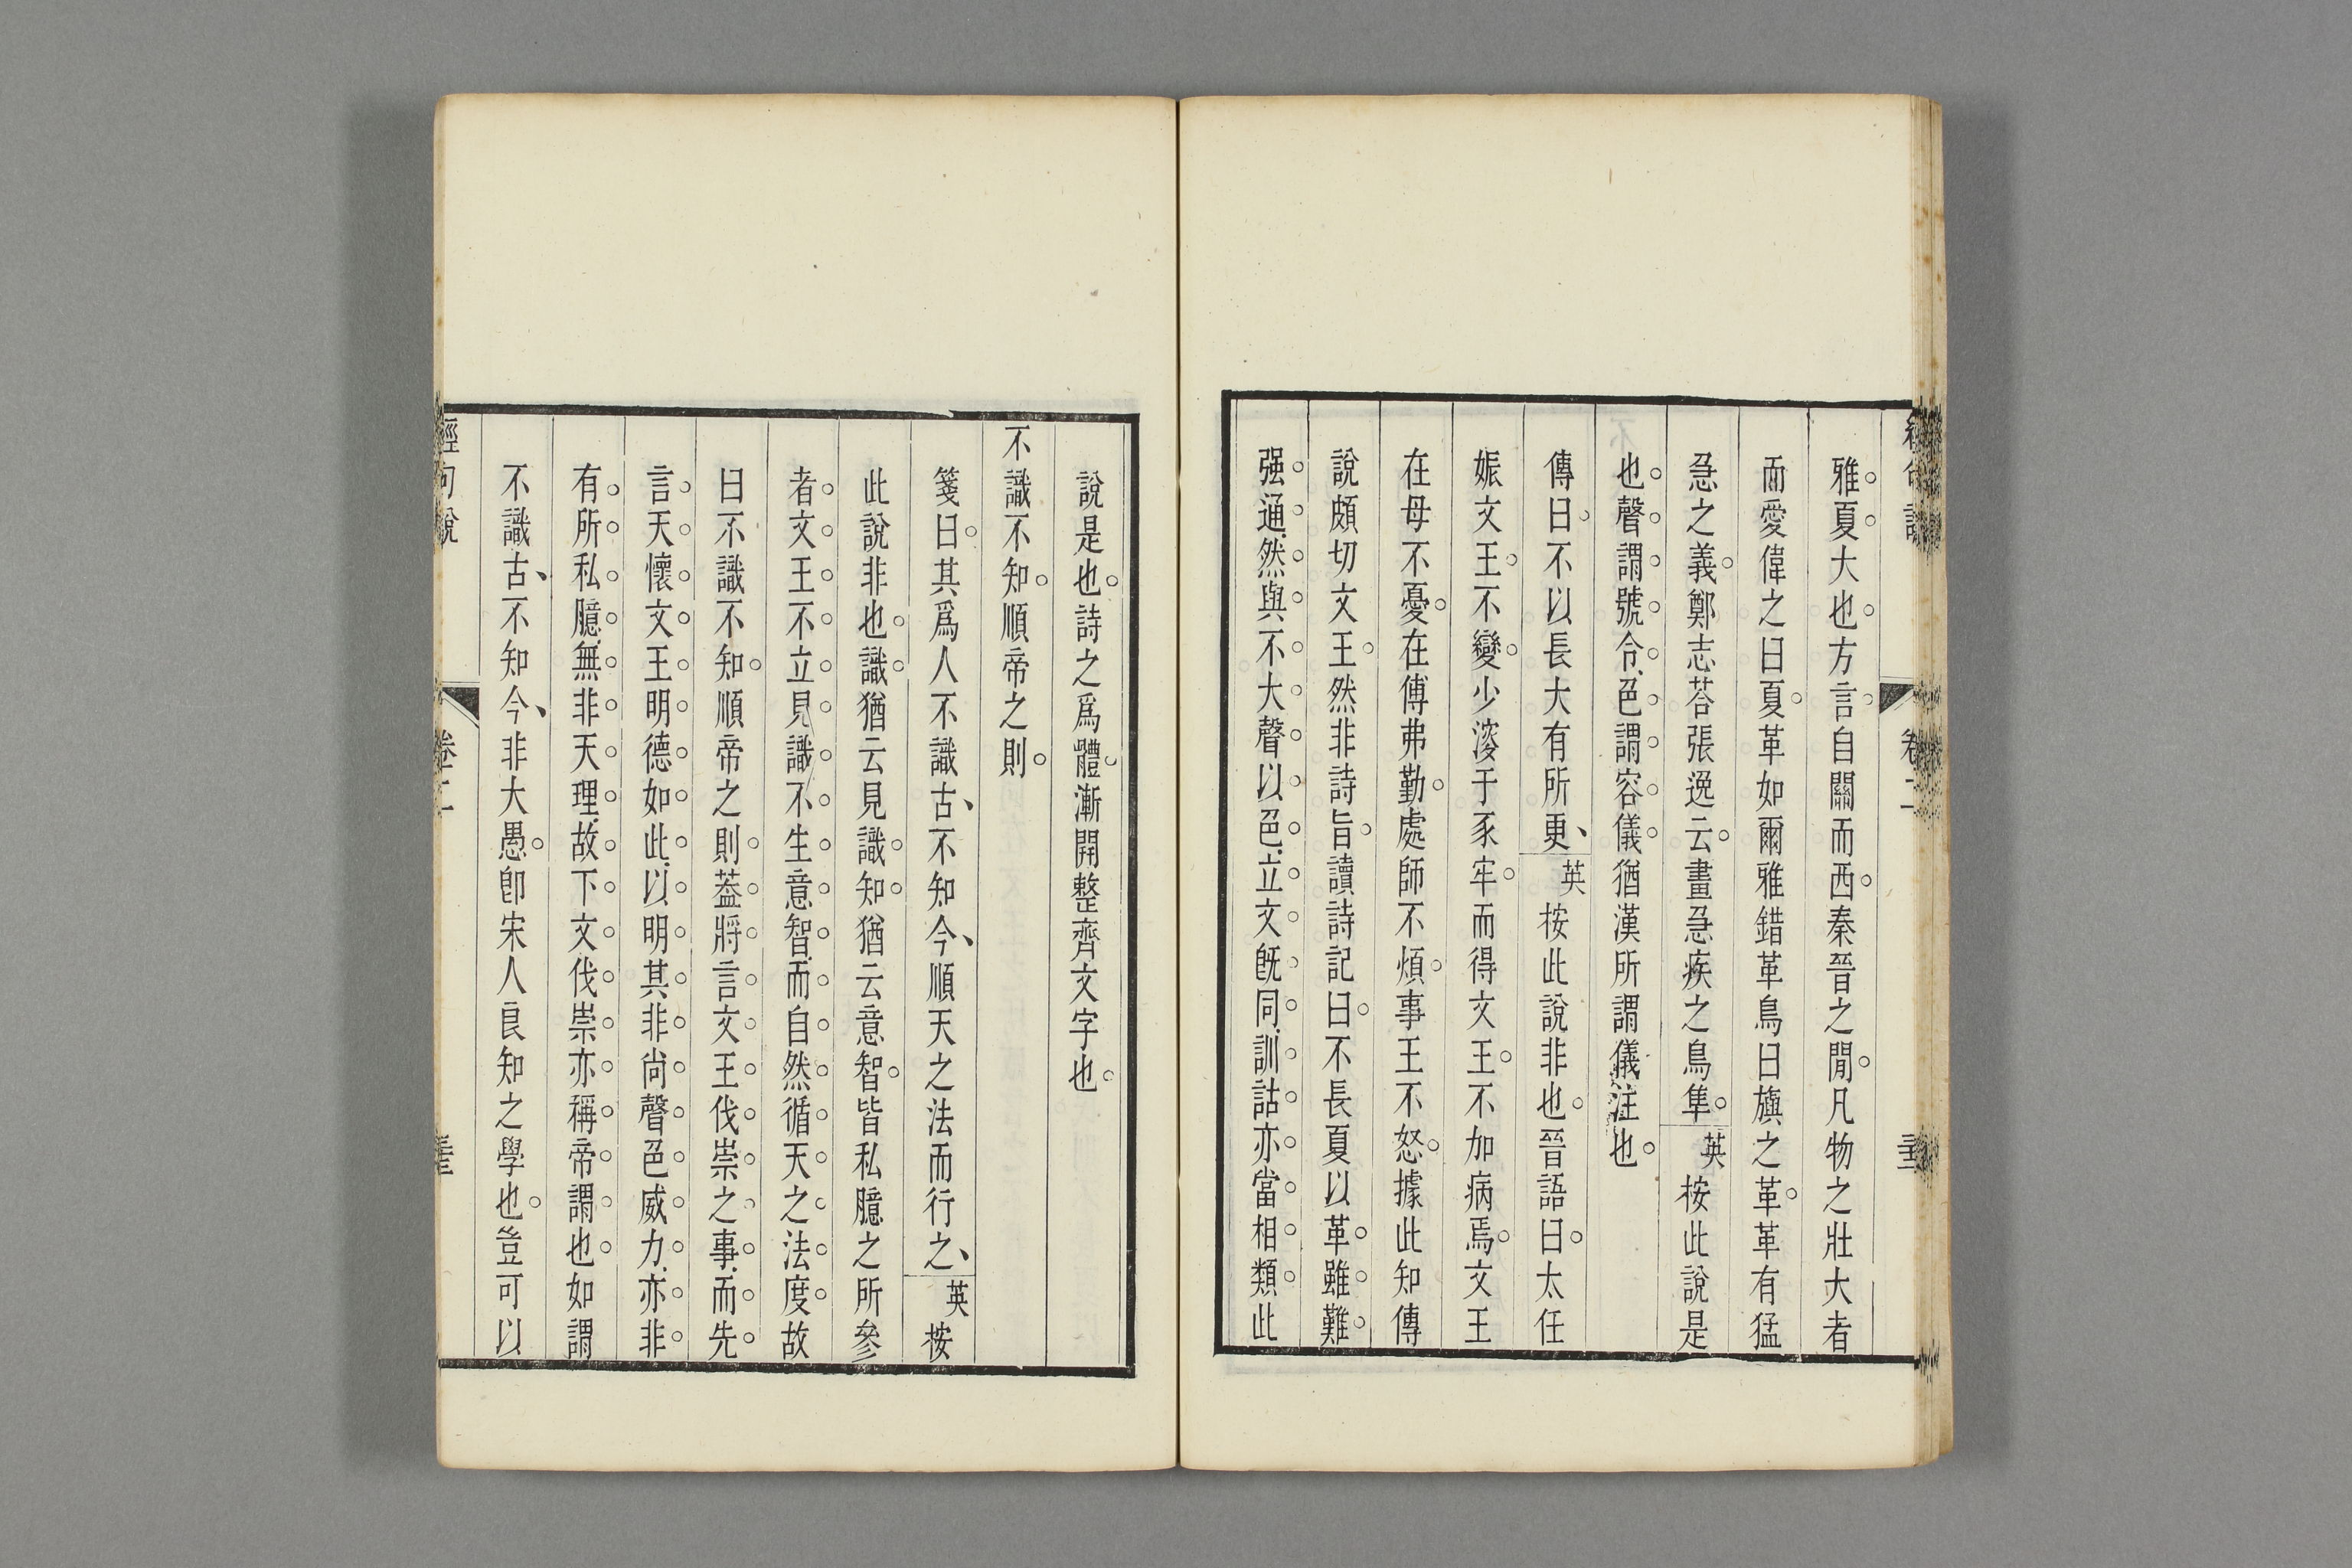 雅夏大也方言自關而西秦晉之閒凡物之壯大者
而愛偉之曰夏革如爾雅錯革鳥曰旟之革革有猛
急之義鄭志荅張逸云畫急疾之鳥隼英按此說是
也聲謂號令色謂容儀猶漢所謂儀注也
傳曰不以長大有所更英按此說非也晉語曰太任
娠文王不變少溲于豕牢而得文王不加病焉文王
在母不憂在傅弗勤處師不煩事王不怒據此知傳
說頗切文王然非詩旨讀詩記曰不長夏以革雖難
强通然與不大聲以色立文旣同訓詁亦當相類此
說是也詩之爲體漸開整齊文字也
不識不知順帝之則
箋曰其爲人不識古不知今順天之法而行之英按
此說非也識猶云見識知猶云意智皆私臆之所參
者文王不立見識不生意智而自然循天之法度故
曰不識不知順帝之則葢將言文王伐崇之事而先
言天懷文王明德如此以明其非尙聲色威力亦非
有所私臆無非天理故下文伐崇亦稱帝謂也如謂
不識古不知今非大愚卽宋人良知之學也豈可以
經句說 卷二